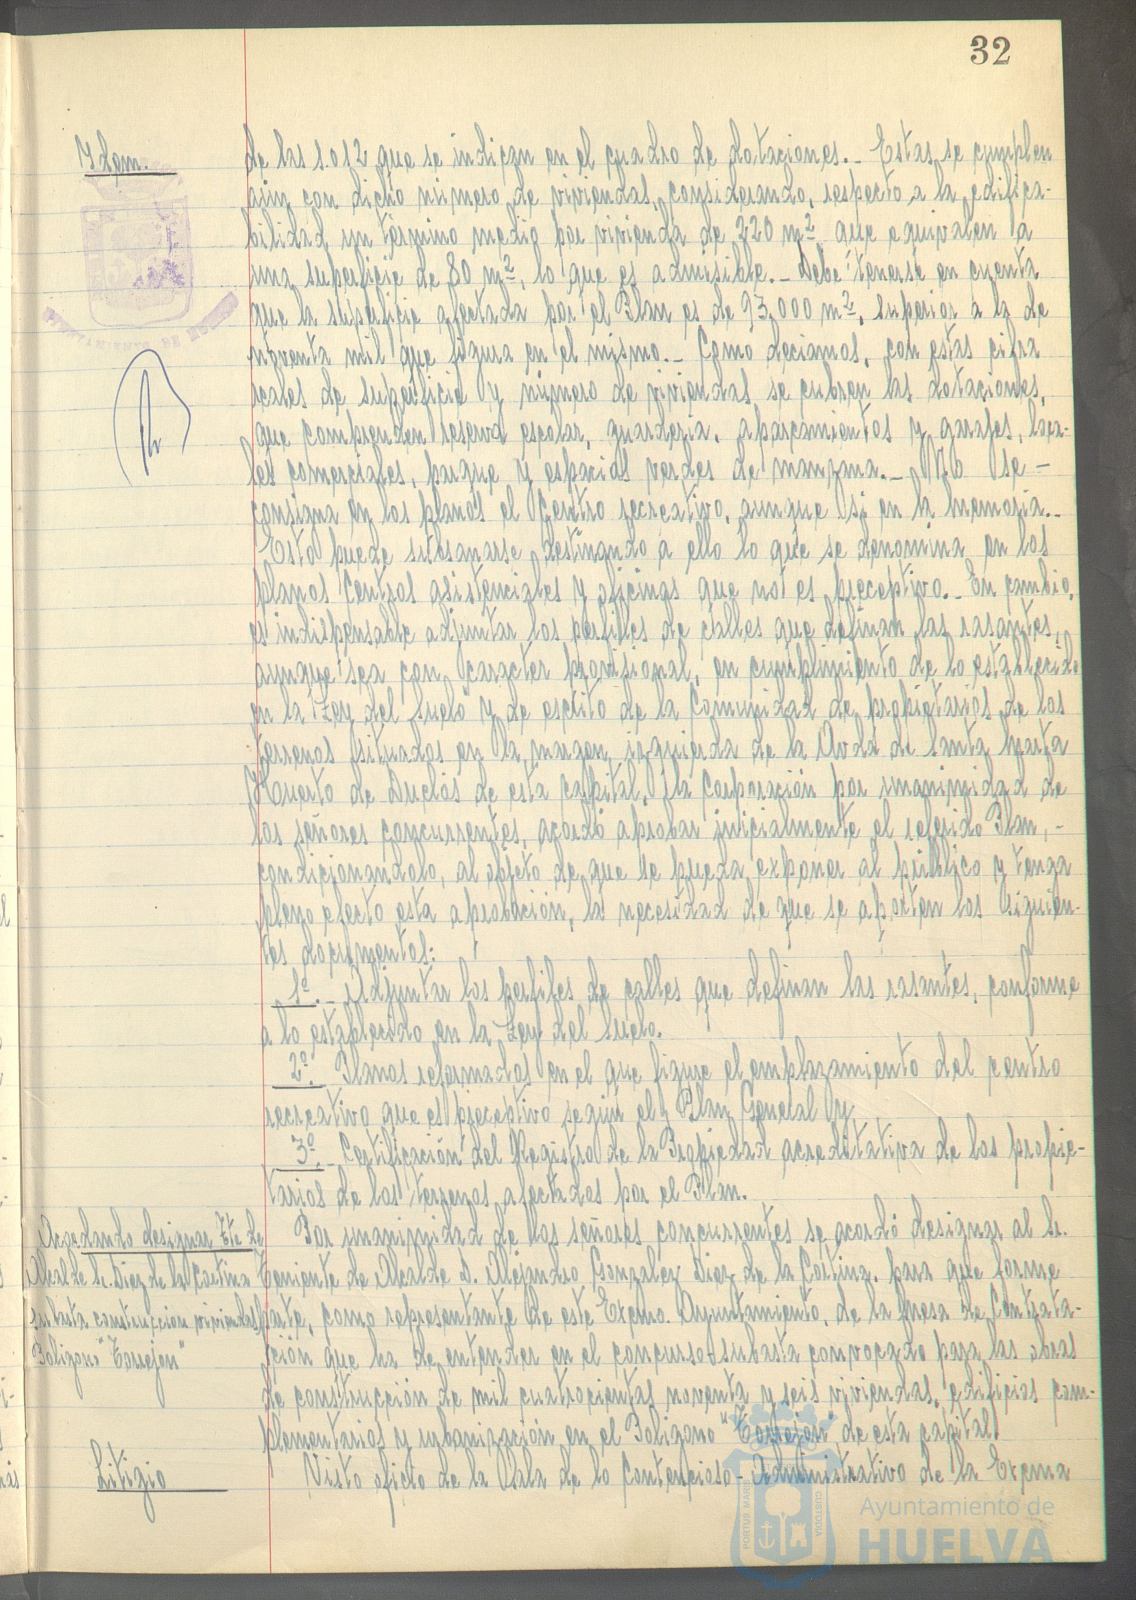 32
Idem.
de las 1.012 que se indican en el cuadro de dotaciones.- Estas se cumplen
aún con dicho número de viviendas, considerando, respecto a la edifica-
bilidad un término medio por vivienda de 220 m², que equivalen a
una superficie de 80 m², lo que es admisible.- Debe tenerse en cuenta
que la superficie afectada por el Plan es de 93.000 m², superior a la de
noventa mil que figura en el mismo.- Como deciamos, con estas cifra
reales de superficie y número de viviendas se cubren las dotaciones,
que comprenden reserva escolar, guardería, aparcamientos y garajes, loca-
les comerciales, parque y espacios verdes de manzana.- No se -
consigna en los planos el Centro recreativo, aunque si en la memoria.-
Esto puede subsanarse destinando a ello lo que se denomina en los
planos Centros asistenciales y oficinas que no es preceptivo.- En cambio,
es indispensable adjuntar los perfiles de calles que definan las rasantes,
aunque sea con caracter provisional, en cumplimiento de lo establecido
en la Ley del Suelo y de escrito de la Comunidad de propietarios de los
terrenos situados en la margen izquierda de la Avda de Santa Marta
Huerto de Duclós de esta capital, la Corporación por unanimidad de
los señores concurrentes, acordó aprobar inicialmente el referido Plan, -
condicionandolo, al objeto de que se pueda exponer al público y tenga
pleno efecto esta aprobación, la necesidad de que se aporten los siguien-
tes documentos:
1º.- Adjuntar los perfiles de calles que definan las rasantes, conforme
a lo establecido en la Ley del Suelo.
2º. Planos reformados en el que figure el emplazamiento del centro
recreativo que es preceptivo según el Plan General y
3º.- Certificación del Registro de la Propiedad acreditativa de los propie-
tarios de los terrenos afectados por el Plan.
Acordando designar Tte de
Alcalde Sr. Diez de la Cortina
subasta construccion viviendas
Poligono "Torrejon"
Por unanimidad de los señores concurrentes se acordó designar al Sr.
Teniente de Alcalde D. Alejandro Gonzalez Diez de la Cortina, para que forme
parte, como representante de este Excmo. Ayuntamiento, de la Mesa de Contrata-
ción que ha de entender en el concurso-subasta convocado para las obras
de construcción de mil cuatrocientas noventa y seis viviendas, edificios com-
plementarios y urbanización en el Poligono "Torrejón" de esta capital.
Litigio
Visto oficio de la Sala de lo Contencioso-Administrativo de la Excma
PORTUS MARIS
CUSTODIA
Ayuntamiento de
HUELVA